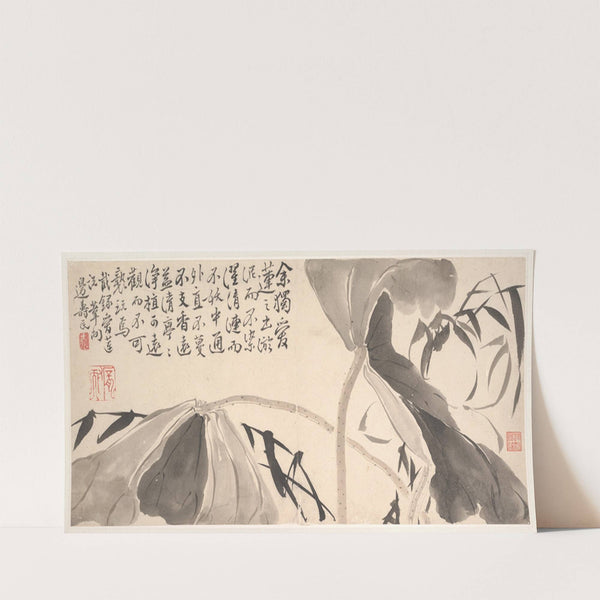 余獨愛
蓮之出淤
泥而不染
濯清漣而
不妖中通
外直不蔓
不支香遠
益清亭〻
淨植可遠
觀而不可
褻玩焉
錄愛蓮
句
邊壽民